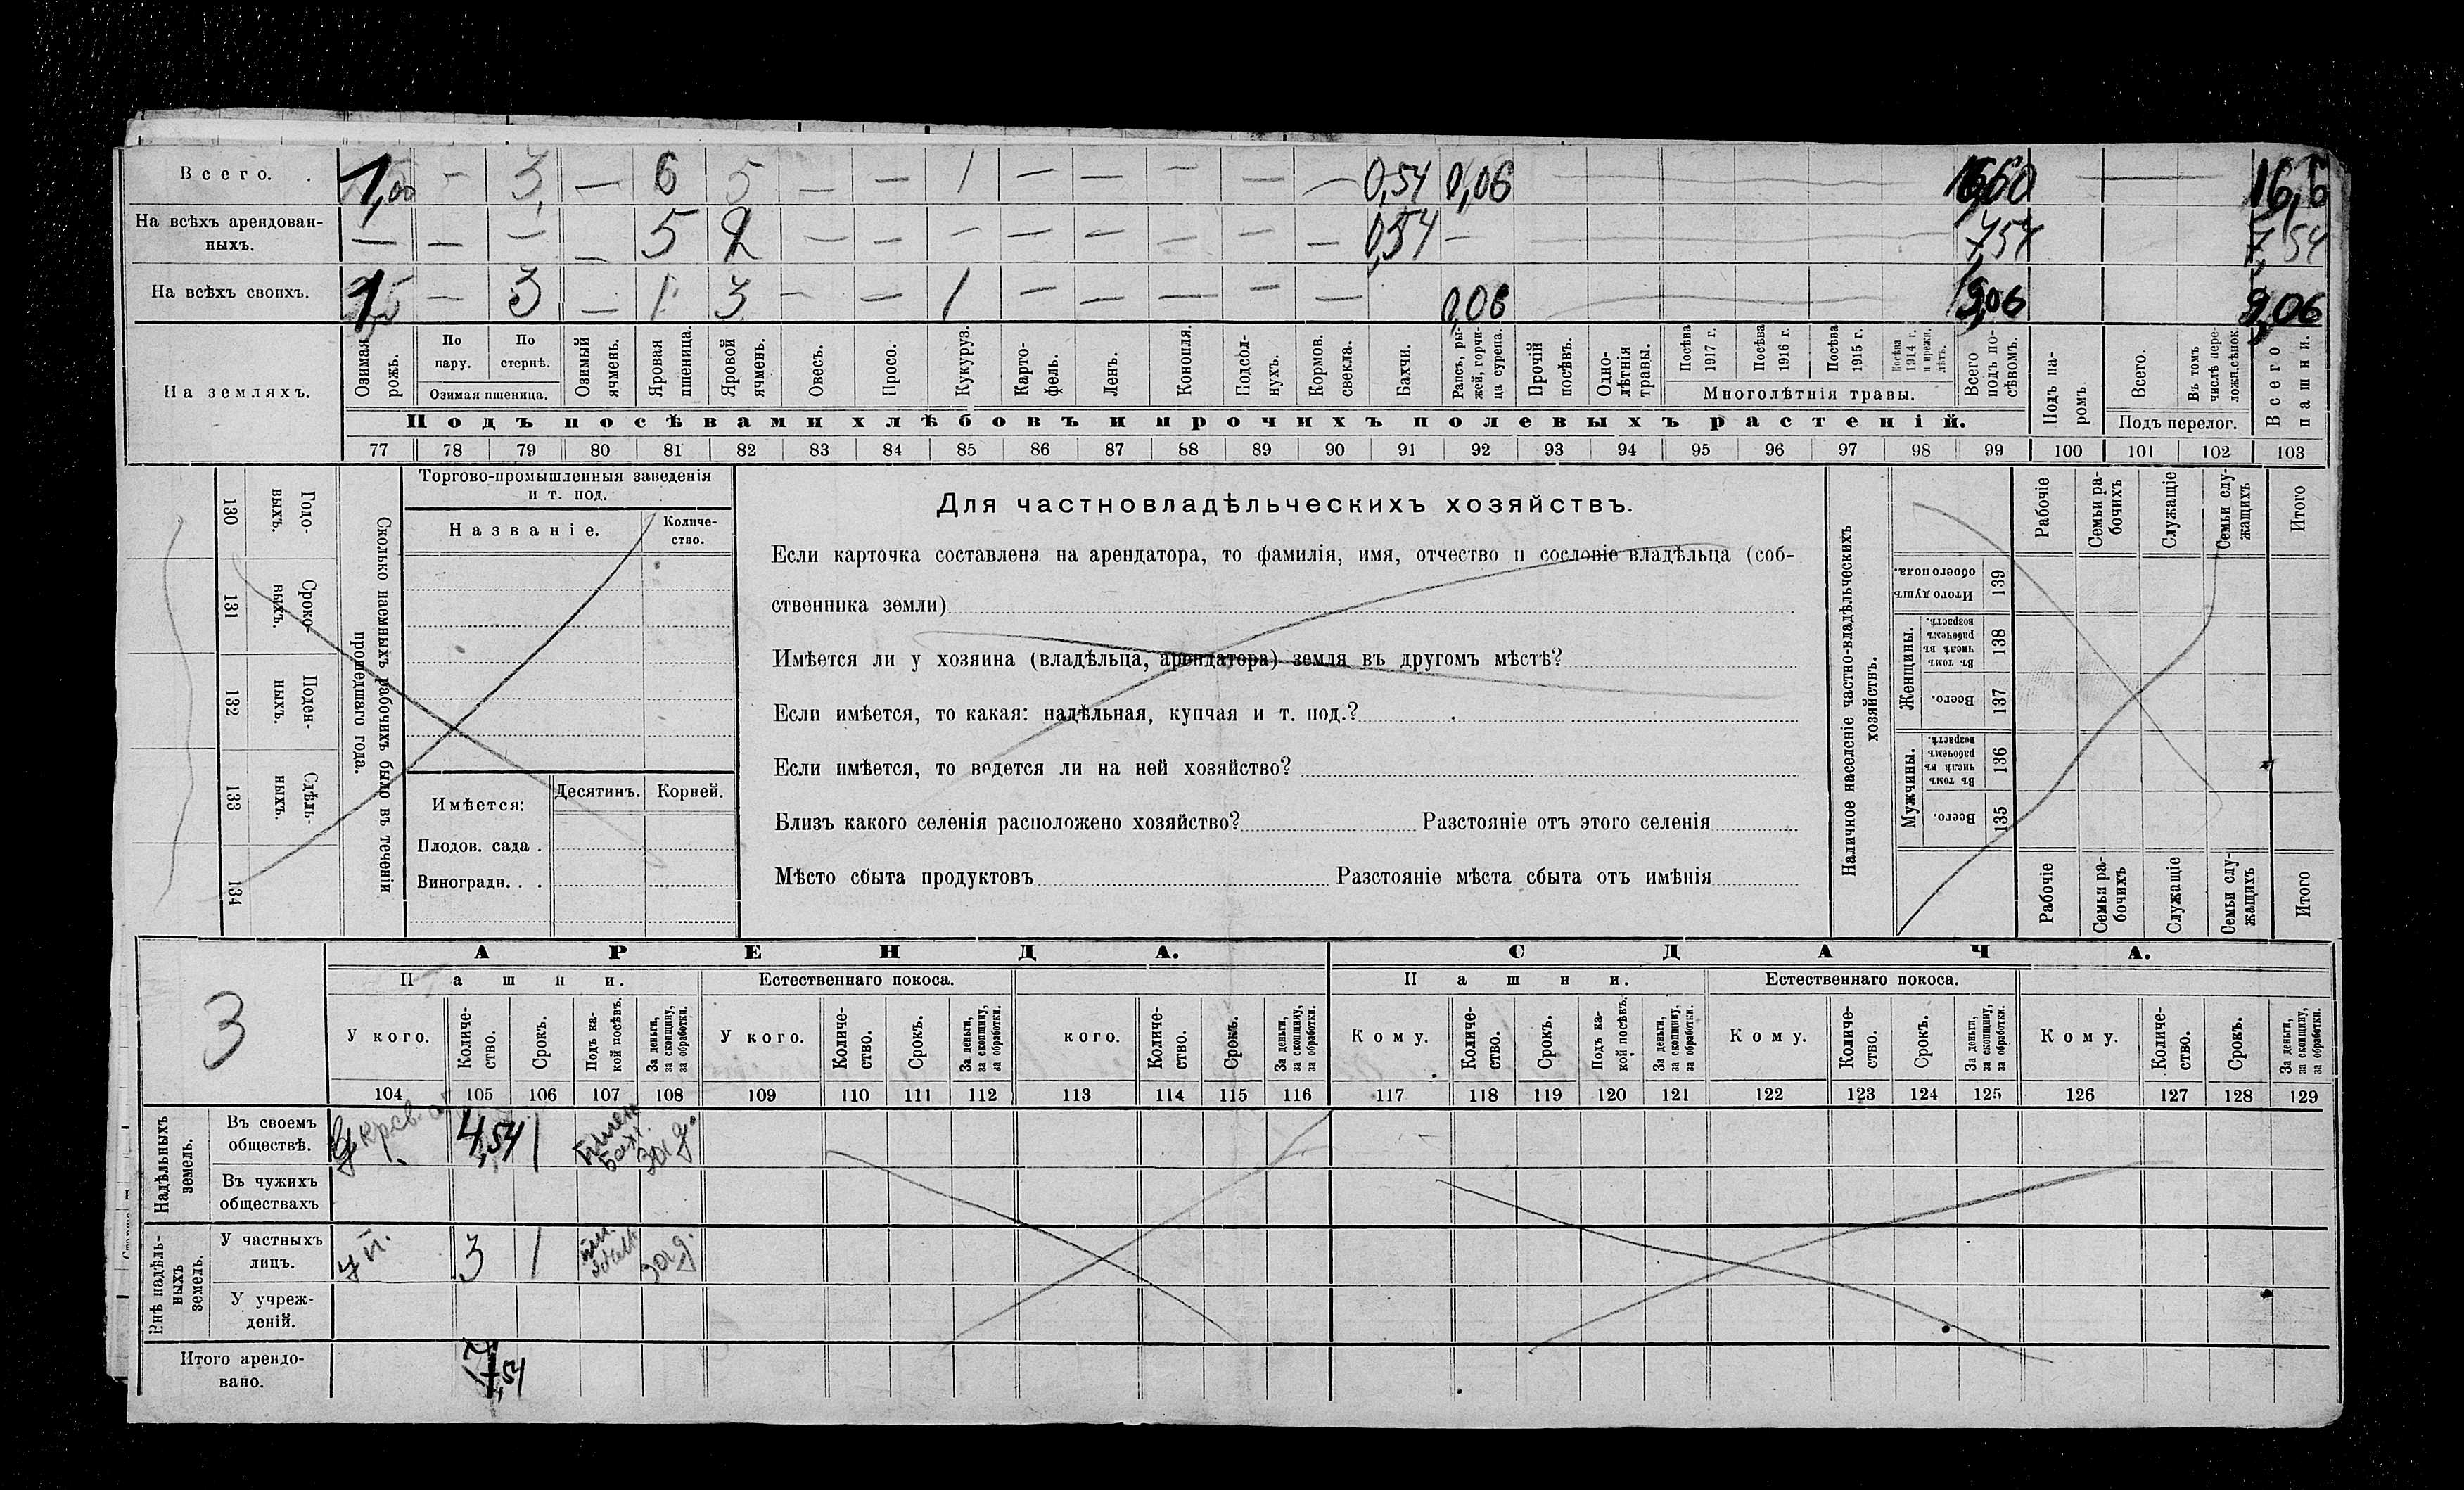 Всего. 1,00 — 3, — 6 5 — — 1 — — — — — 0,54 0,06 16,60 — 16,6
На всѣхъ арендован-
ныхъ. — — — — 5 2 — — — — — — — — 0,54 — 7,54 7,54
На всѣхъ своихъ. 1 — 3 — 1 3 — — 1 — — — — — 0,06 9,06 9,06
На земляхъ.
Озимая рожь.
По пару.
По стернѣ.
Озимая пшеница.
Озимый ячмень.
Яровая пшеница.
Яровой ячмень.
Овесъ.
Просо.
Кукуруз.
Карто-
фель.
Ленъ.
Конопля.
Подсол-
нухъ.
Кормов.
свекла.
Бахчи.
Рапсъ, ры-
жей, горчи-
ца сурепа.
Прочій посѣвъ.
Одно-
лѣтнія травы.
Посѣва 1917 г.
Посѣва 1916 г.
Посѣва 1915 г.
Посѣва 1914 г. и прежн. лѣтъ.
Многолѣтнія травы.
Всего подъ по-
сѣвомъ.
Подъ па-
ромъ.
Всего.
Въ томъ числѣ пере-
ложн.сѣнок.
Подъ перелог.
Всего пашни.
Подъ посѣвами хлѣбовъ и прочихъ полевыхъ растеній.
77 78 79 80 81 82 83 84 85 86 87 88 89 90 91 92 93 94 95 96 97 98 99 100 101 102 103
130 Годо-
выхъ.
131 Сроко-
выхъ.
132 Поден-
ныхъ.
133 Сдѣль-
ныхъ.
134
Сколько наемныхъ рабочихъ было въ теченіи
прошедшаго года.
Торгово-промышленныя заведенія
и т. под.
Названіе.
Количе-
ство.
Имѣется:
Десятинъ.
Корней.
Плодов. сада .
Виноградн. . .
Для частновладѣльческихъ хозяйствъ.
Если карточка составлена на арендатора, то фамилія, имя, отчество и сословіе владѣльца (соб-
ственника земли)
Имѣется ли у хозяина (владѣльца, арендатора) земля въ другомъ мѣстѣ?
Если имѣется, то какая: надѣльная, купчая и т. под.?
Если имѣется, то ведется ли на ней хозяйство?
Близъ какого селенія расположено хозяйство? Разстояніе отъ этого селенія
Мѣсто сбыта продуктовъ Разстояніе мѣста сбыта отъ имѣнія
Наличное населеніе частно-владѣльческихъ
хозяйствъ.
Рабочіе
Семьи ра-
бочихъ
Служащіе
Семьи слу-
жащихъ
Итого
Итого душъ обоего пола. 139
Женщины.
Въ томъ числѣ въ рабочемъ возрастѣ. 138
Всего. 137
Мужчины.
Въ томъ числѣ въ рабочемъ возрастѣ. 136
Всего. 135
Рабочіе
Семьи ра-
бочихъ
Служащіе
Семьи слу-
жащихъ
Итого
3
АРЕНДА.
СДАЧА.
Пашни.
Естественнаго покоса.
Пашни.
Естественнаго покоса.
У кого.
Количе-
ство.
Срокъ.
Подъ ка-
кой посѣвъ.
За деньги,
за скопщину,
за обработки.
У кого.
Количе-
ство.
Срокъ.
За деньги,
за скопщину,
за обработки.
кого.
Количе-
ство.
Срокъ.
За деньги,
за скопщину,
за обработки.
Кому.
Количе-
ство.
Срокъ.
Подъ ка-
кой посѣвъ.
За деньги,
за скопщину,
за обработки.
Кому.
Количе-
ство.
Срокъ.
За деньги,
за скопщину,
за обработки.
Кому.
Количе-
ство.
Срокъ.
За деньги,
за скопщину,
за обработки.
104 105 106 107 108 109 110 111 112 113 114 115 116 117 118 119 120 121 122 123 124 125 126 127 128 129
Надѣльныхъ
земель.
Въ своемъ
обществѣ. 4,54 1 за д.
Въ чужихъ
обществахъ
Внѣ надѣль-
ныхъ
земель.
У частныхъ
лицъ. у п. 3 1 за д.
У учреж-
деній.
Итого арендо-
вано. 7,54